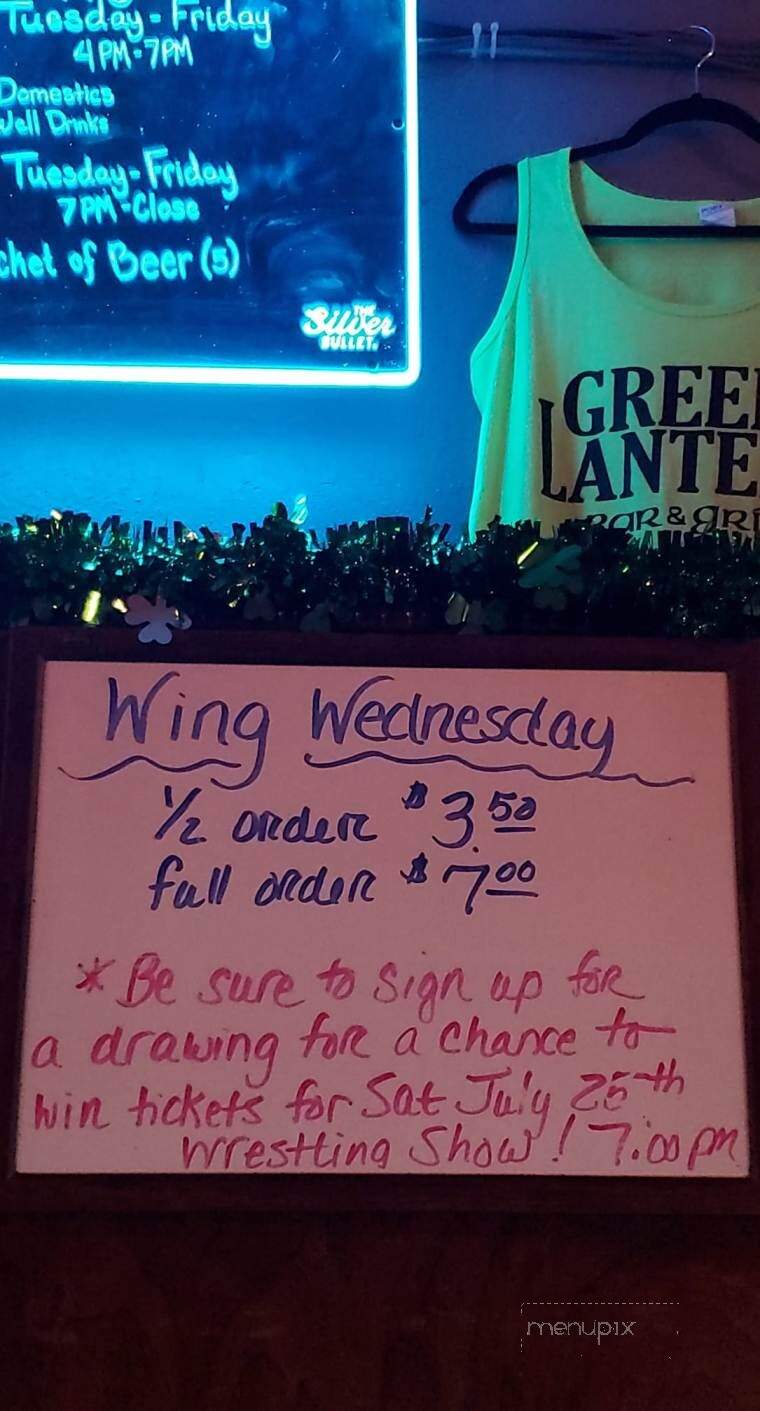 Tuesday-Friday
4PM-7PM
Domestics
Well Drinks
Tuesday-Friday
7PM-Close
cket of Beer (5)
THE
Silver
BULLET.
GREE
LANTE
BAR & GRI
Wing Wednesday
1/2 order $3.50
full order $7.00
* Be sure to sign up for
a drawing for a chance to
win tickets for Sat July 25th
Wrestling Show! 7:00 pm
menupix